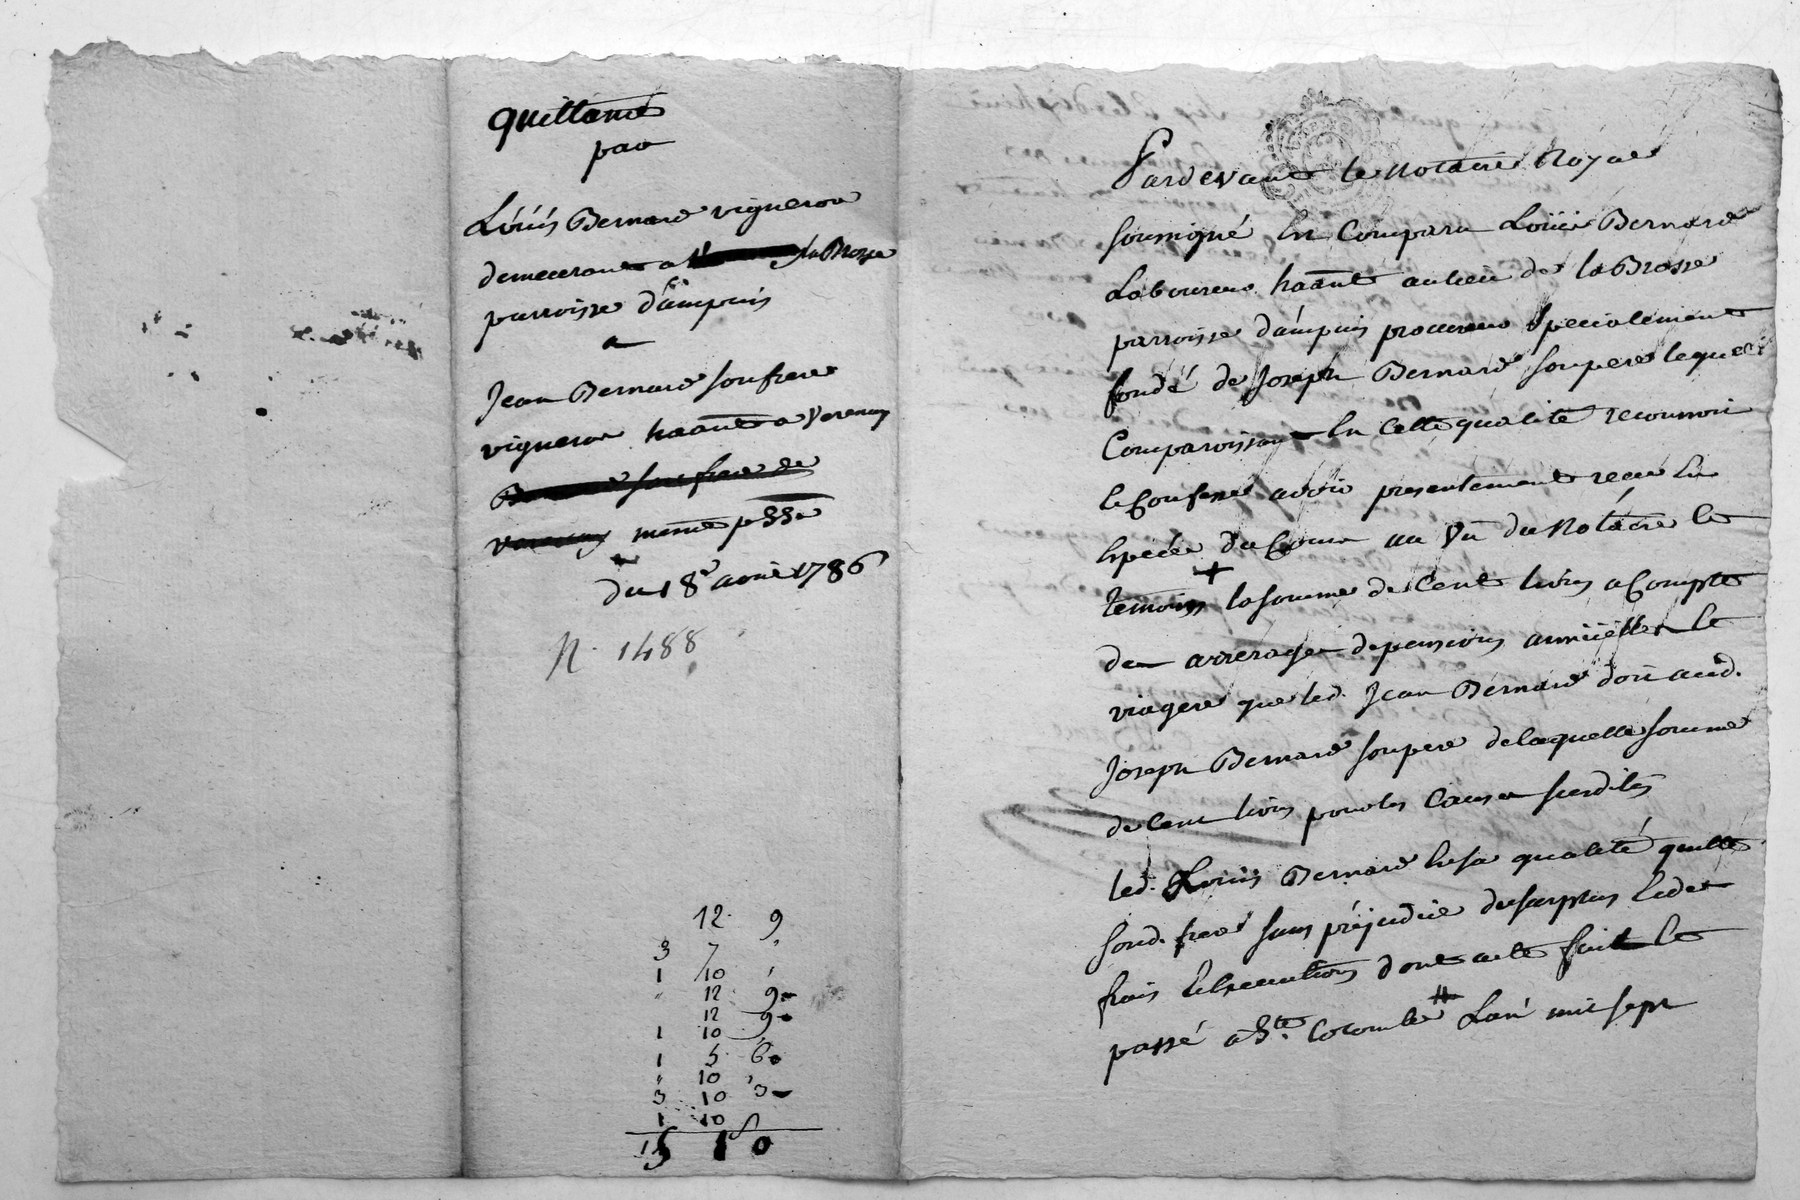 quittance
par
Louis Bernard vigneron
demeurant a la Brosse
parroisse d'ampuis
a
Jean Bernard son frere
vigneron haánt a Verenay
Bernard son frere de
verenay meme psse
du 18e aout 1786
N. 1488
12 9
3 7 "
1 10 "
" 12 9
12 9
1 10
1 5 6
" 10 "
3 10 3
1 10
15 1 0
Pardevant le Notaire Royal
soussigné En Comparu Louis Bernard
Laboureur haánt au lieu de la Brosse
parroisse d'ampuis procureur specialement
fondé de Joseph Bernard son pere lequel
Comparoissant En cette qualité reconnoit
et Confesse avoir presentement receu En
Espéce du Cours au Vû du Notaire et
temoins + la somme de Cent livres a Compte
des arrerages de pensions annüelles et
viagere que led. Jean Bernard doit aud.
Joseph Bernard son pere de laquelle somme
de Cent livres pour les Causes susdites
led. Louis Bernard En sa qualité quitte
sond. frere sans préjudice du surplus Et des
frais Et Executions dont acte fait et
passé a Ste. Colombe # L'an mil sept